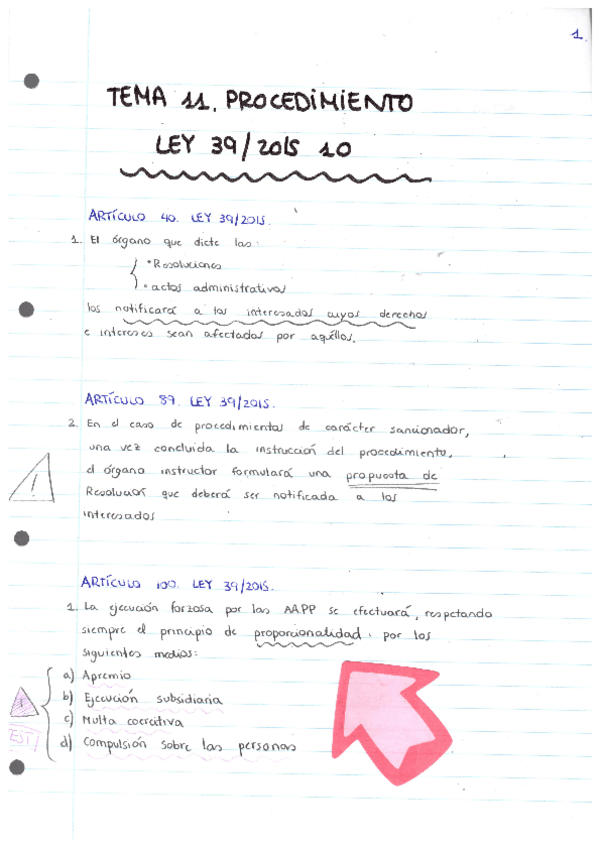 1
TEMA 11. PROCEDIMIENTO
LEY 39/2015 10
ARTÍCULO 40. LEY 39/2015.
1. El órgano que dicte las:
• Resoluciones
• actos administrativos
los notificará a los interesados cuyos derechos
e intereses sean afectados por aquéllos.
ARTÍCULO 89. LEY 39/2015.
2. En el caso de procedimientos de carácter sancionador,
una vez concluida la instrucción del procedimiento,
el órgano instructor formulará una propuesta de
! Resolución que deberá ser notificada a los
interesados
ARTÍCULO 100. LEY 39/2015.
1. La ejecución forzosa por las AAPP se efectuará, respetando
siempre el principio de proporcionalidad. por los
siguientes medios:
a) Apremio
b) Ejecución subsidiaria
c) Multa coercitiva
d) Compulsión sobre las personas